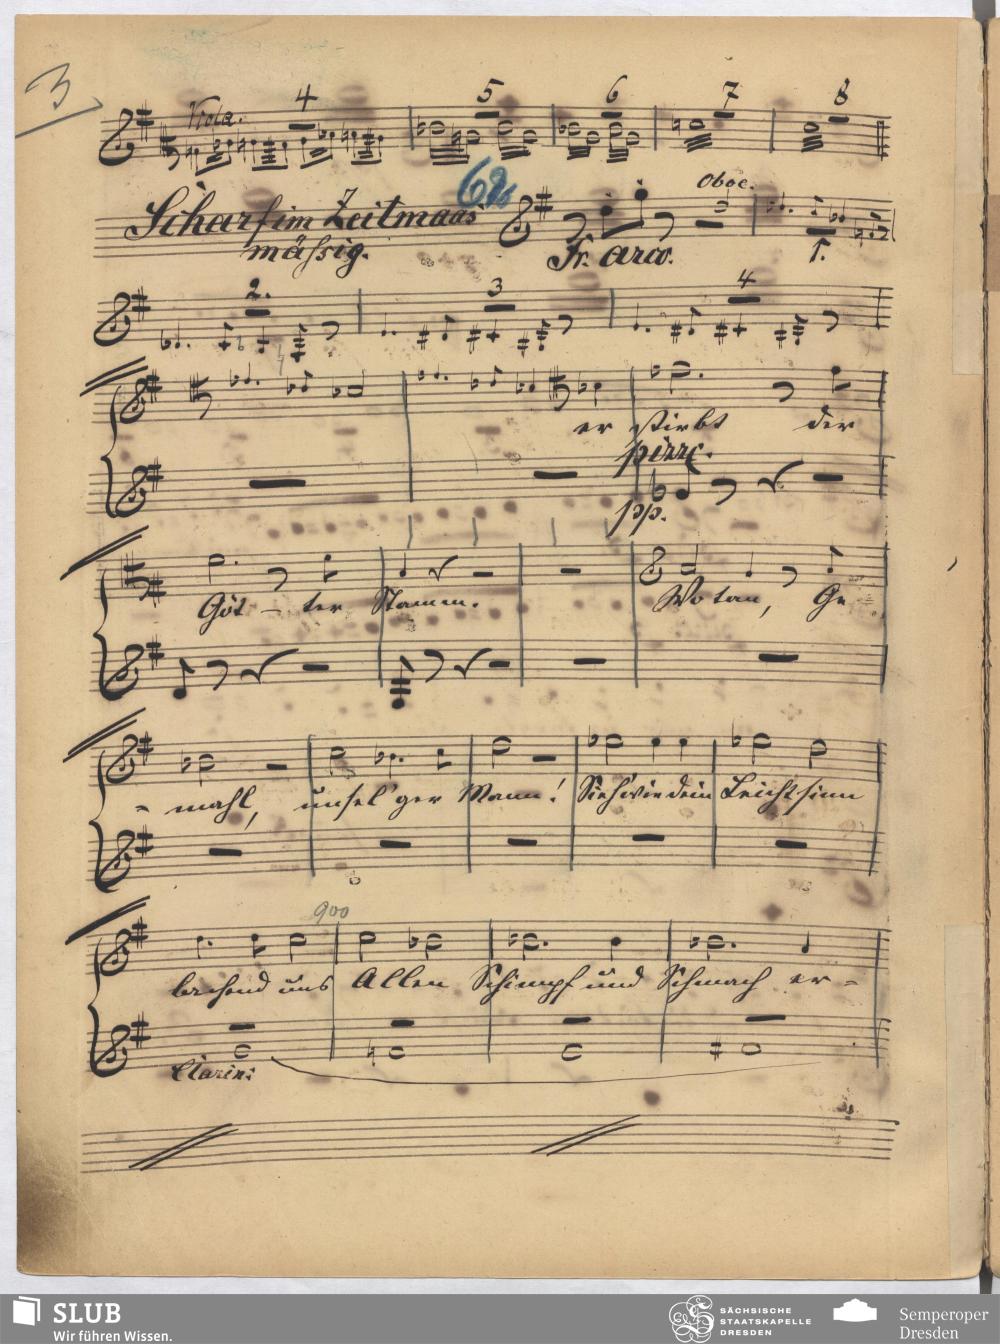 3
Viola. 4 5 6 7 8
68
Scharf im Zeitmaas Oboe.
mässig. Fr. arco. 1.
2. 3 4
er stirbt der
pizzc.
pp.
Göt - ter Stamm. Wotan, Ge -
- mahl, unsel'ger Mann! Sieh wie dein Leichtsinn
900
lachend uns Allen Schimpf und Schmach er -
Clarin:
SLUB
Wir führen Wissen.
SÄCHSISCHE
STAATSKAPELLE
DRESDEN
Semperoper
Dresden